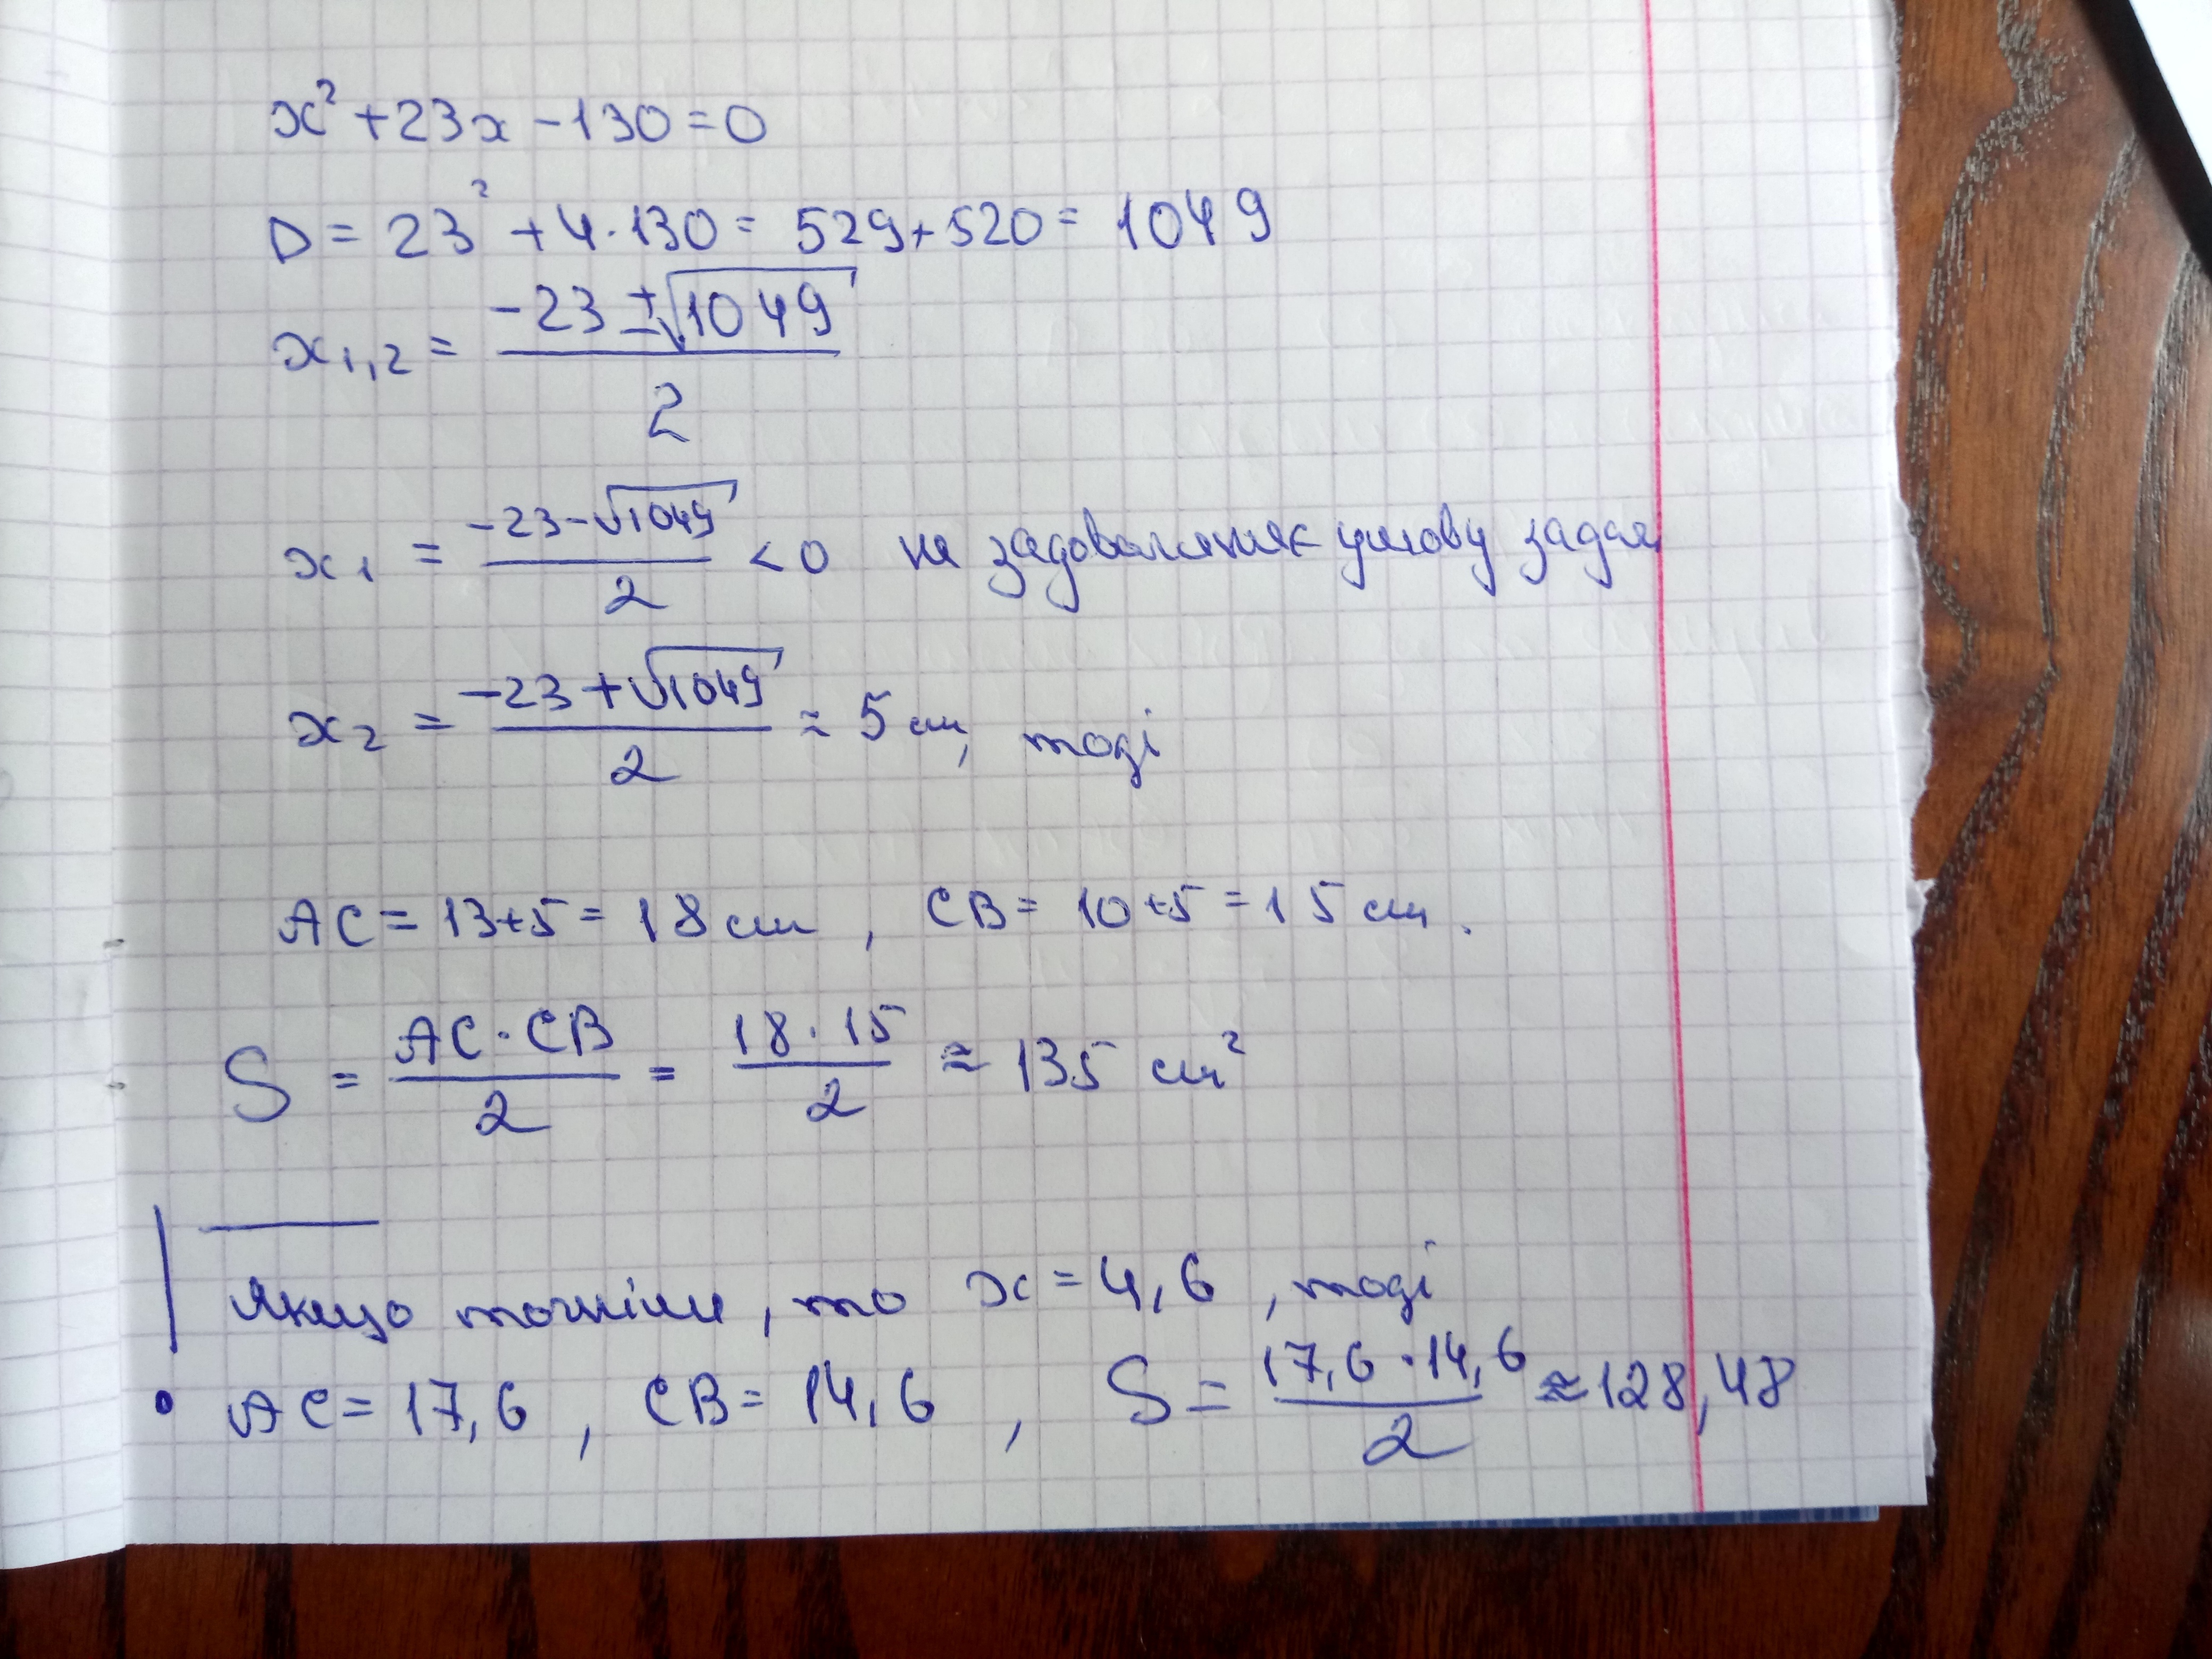 x² + 23x - 130 = 0
D = 23² + 4·130 = 529 + 520 = 1049
x₁,₂ = (-23 ± √1049) / 2
x₁ = (-23 - √1049) / 2 < 0 не задовольняє умову задачі
x₂ = (-23 + √1049) / 2 ≈ 5 см, тоді
AC = 13+5 = 18 см , CB = 10+5 = 15 см.
S = (AC·CB) / 2 = (18·15) / 2 ≈ 135 см²
Якщо точніше, то x = 4,6 , тоді
AC = 17,6 , CB = 14,6 , S = (17,6·14,6) / 2 ≈ 128,48